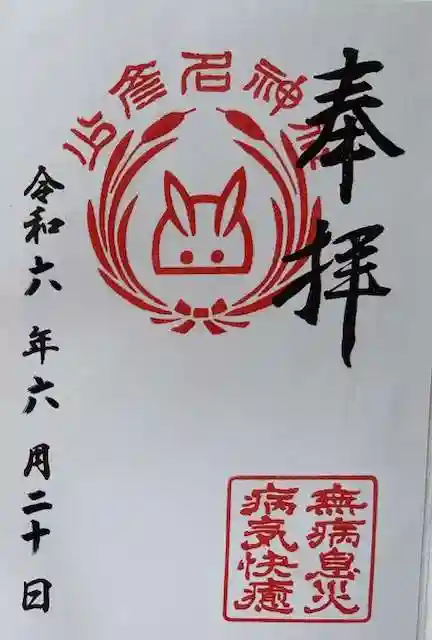 奉拝
少彦名神社
無病息災
病気快癒
令和六年六月二十日